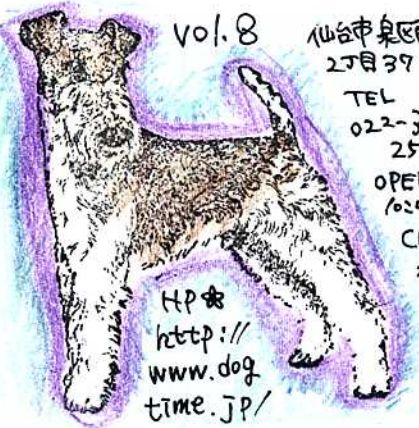 vol.8
仙台市泉区
2丁目37
TEL
022-
25
OPE
10:
C
HP❀
http://
www.dog
time.jp/